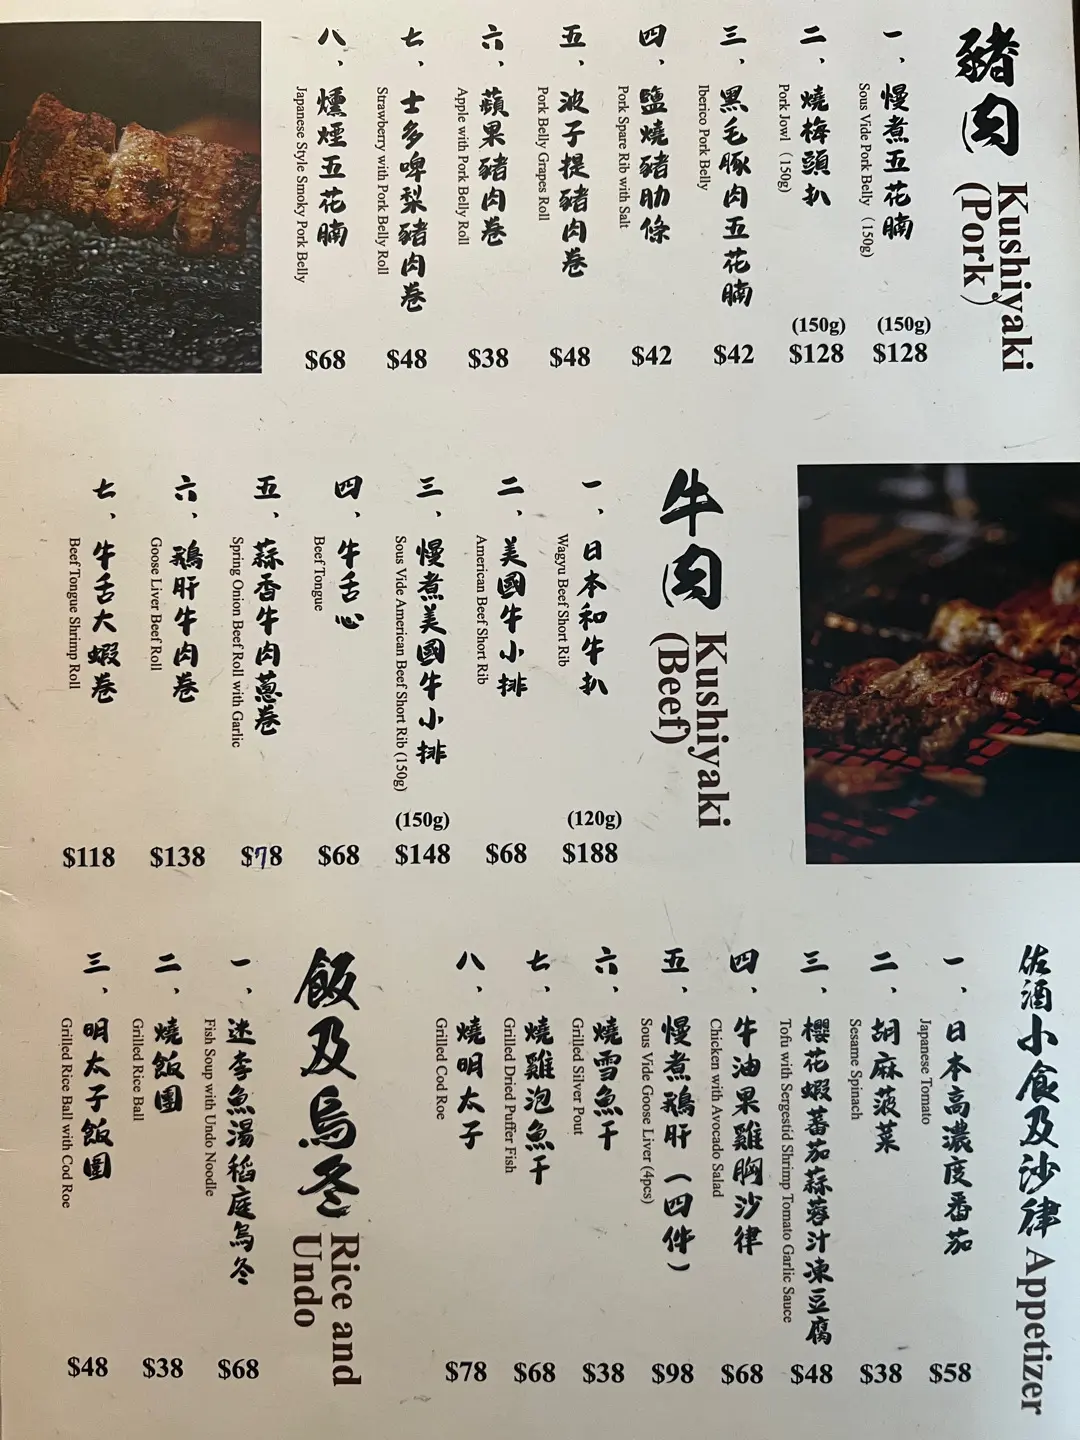 豬肉 Kushiyaki
(Pork)
一、慢煮五花腩 (150g) $128
Sous Vide Pork Belly (150g)
二、燒梅頭扒 (150g) $128
Pork Jowl (150g)
三、黑毛豚肉五花腩 $42
Iberico Pork Belly
四、鹽燒豬肋條 $42
Pork Spare Rib with Salt
五、波子提豬肉卷 $48
Pork Belly Grapes Roll
六、蘋果豬肉卷 $38
Apple with Pork Belly Roll
七、士多啤梨豬肉卷 $48
Strawberry with Pork Belly Roll
八、燻煙五花腩 $68
Japanese Style Smoky Pork Belly
牛肉 Kushiyaki
(Beef)
一、日本和牛扒 (120g) $188
Wagyu Beef Short Rib
二、美國牛小排 $68
American Beef Short Rib
三、慢煮美國牛小排 (150g) $148
Sous Vide American Beef Short Rib (150g)
四、牛舌心 $68
Beef Tongue
五、蒜香牛肉蔥卷 $78
Spring Onion Beef Roll with Garlic
六、鵝肝牛肉卷 $138
Goose Liver Beef Roll
七、牛舌大蝦卷 $118
Beef Tongue Shrimp Roll
佐酒小食及沙律 Appetizer
一、日本高濃度番茄 $58
Japanese Tomato
二、胡麻菠菜 $38
Sesame Spinach
三、櫻花蝦蕃茄蒜蓉汁凍豆腐 $48
Tofu with Sergestid Shrimp Tomato Garlic Sauce
四、牛油果雞胸沙律 $68
Chicken with Avocado Salad
五、慢煮鵝肝（四件） $98
Sous Vide Goose Liver (4pcs)
六、燒雪魚干 $38
Grilled Silver Pout
七、燒雞泡魚干 $68
Grilled Dried Puffer Fish
八、燒明太子 $78
Grilled Cod Roe
飯及烏冬 Rice and
Undo
一、迷李魚湯稻庭烏冬 $68
Fish Soup with Undo Noodle
二、燒飯團 $38
Grilled Rice Ball
三、明太子飯團 $48
Grilled Rice Ball with Cod Roe